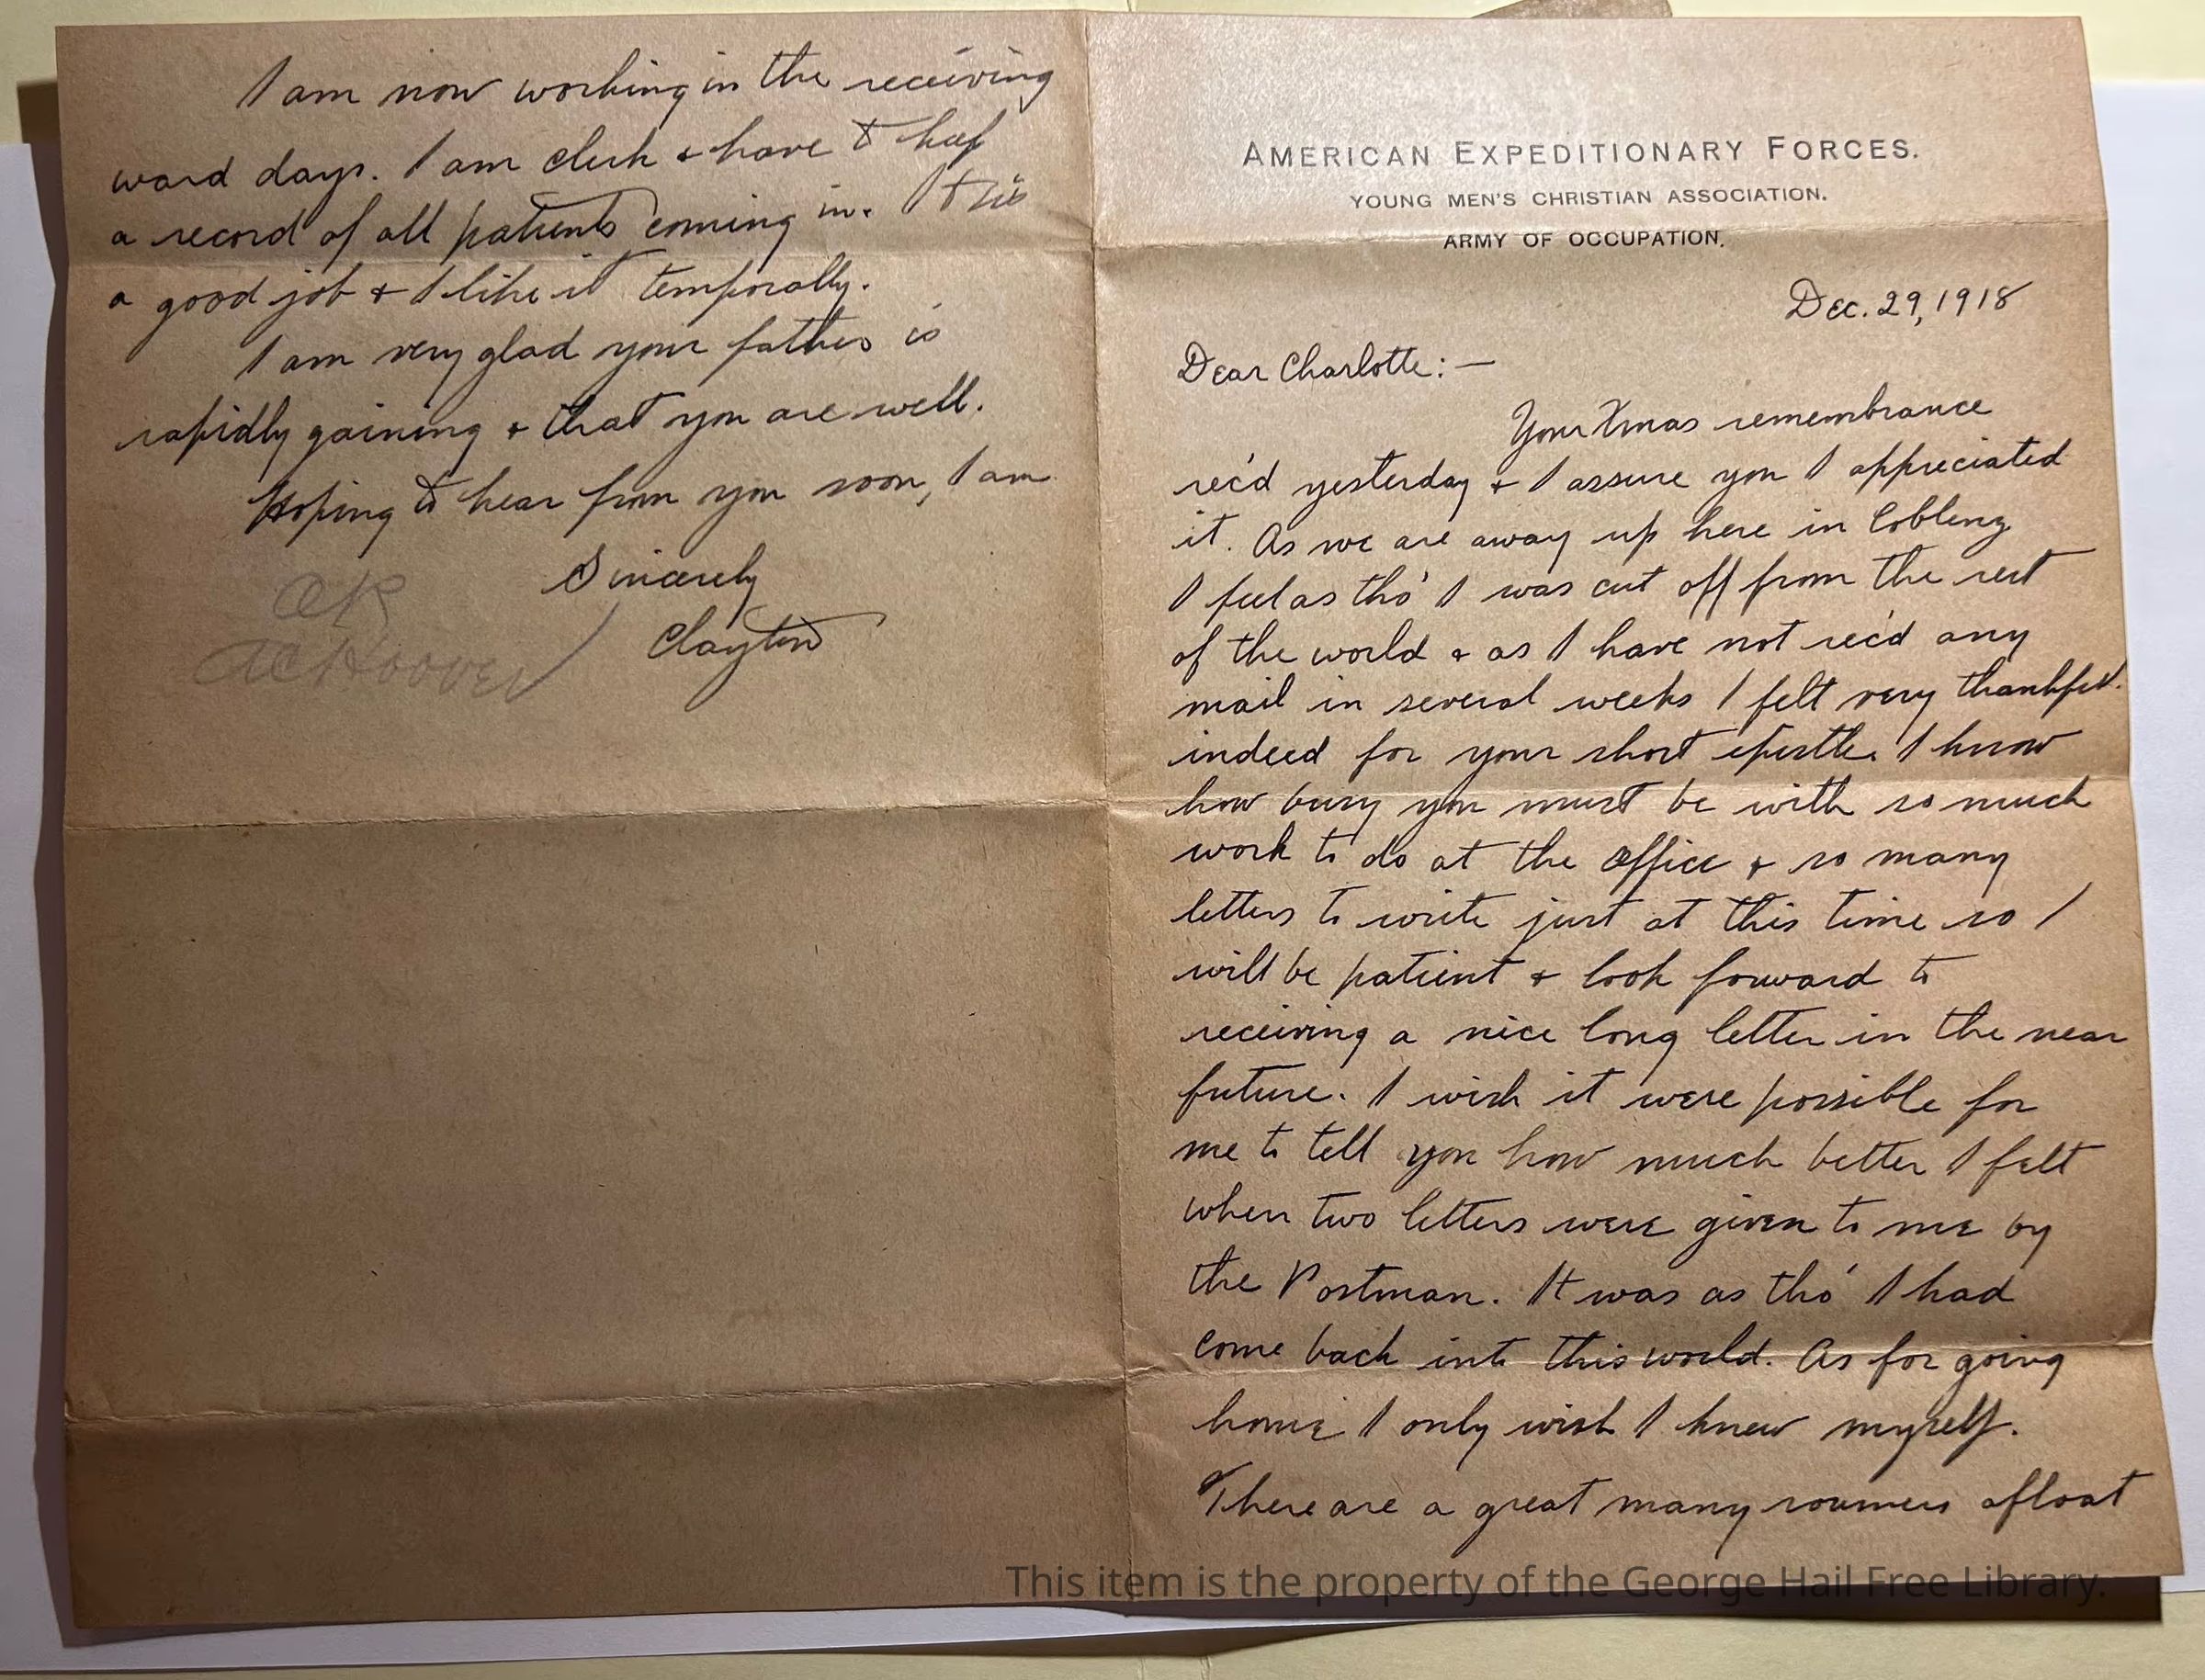 AMERICAN EXPEDITIONARY FORCES.
YOUNG MEN'S CHRISTIAN ASSOCIATION.
ARMY OF OCCUPATION.
Dec. 29, 1918
Dear Charlotte: —
Your Xmas remembrance
rec'd yesterday & I assure you I appreciated
it. As we are away up here in Coblenz
I feel as tho' I was cut off from the rest
of the world & as I have not rec'd any
mail in several weeks I felt very thankful
indeed for your short epistle. I know
how busy you must be with so much
work to do at the office & so many
letters to write just at this time so I
will be patient & look forward to
receiving a nice long letter in the near
future. I wish it were possible for
me to tell you how much better I felt
when two letters were given to me by
the Postman. It was as tho' I had
come back into this world. As for going
home I only wish I knew myself.
There are a great many roumers afloat
I am now working in the receiving
ward days. I am clerk & have to keep
a record of all patients coming in. It is
a good job & I like it temporally.
I am very glad your father is
rapidly gaining & that you are well.
Hoping to hear from you soon, I am
Sincerely
Clayton
OK
AC Hoover
This item is the property of the George Hail Free Library.